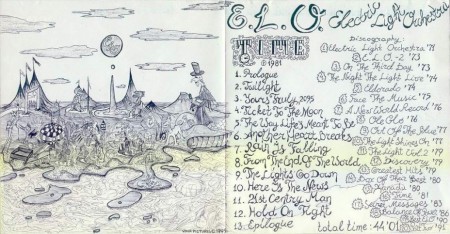 E.L.O. Electric Light Orchestra
TIME
©1981
1. Prologue
2. Twilight
3. Yours Truly, 2095
4. Ticket To The Moon
5. The Way Life's Meant To Be
6. Another Heart Breaks
7. Rain Is Falling
8. From The End Of The World
9. The Lights Go Down
10. Here Is The News
11. 21st Century Man
12. Hold On Tight
13. Epilogue
total time: 44'01
Discography:
Electric Light Orchestra '71
E.L.O.-2 '73
On The Third Day '73
The Night The Light Live '74
Eldorado '74
Face The Music '75
A New World Record '76
Ole Elo '76
Out Of The Blue '77
The Light Shines On '77
The Light Vol 2 '79
Discovery '79
Greatest Hits '79
Box Of Their Best '80
Xanadu '80
Time '81
Secret Messages '83
Balance Of Power '86